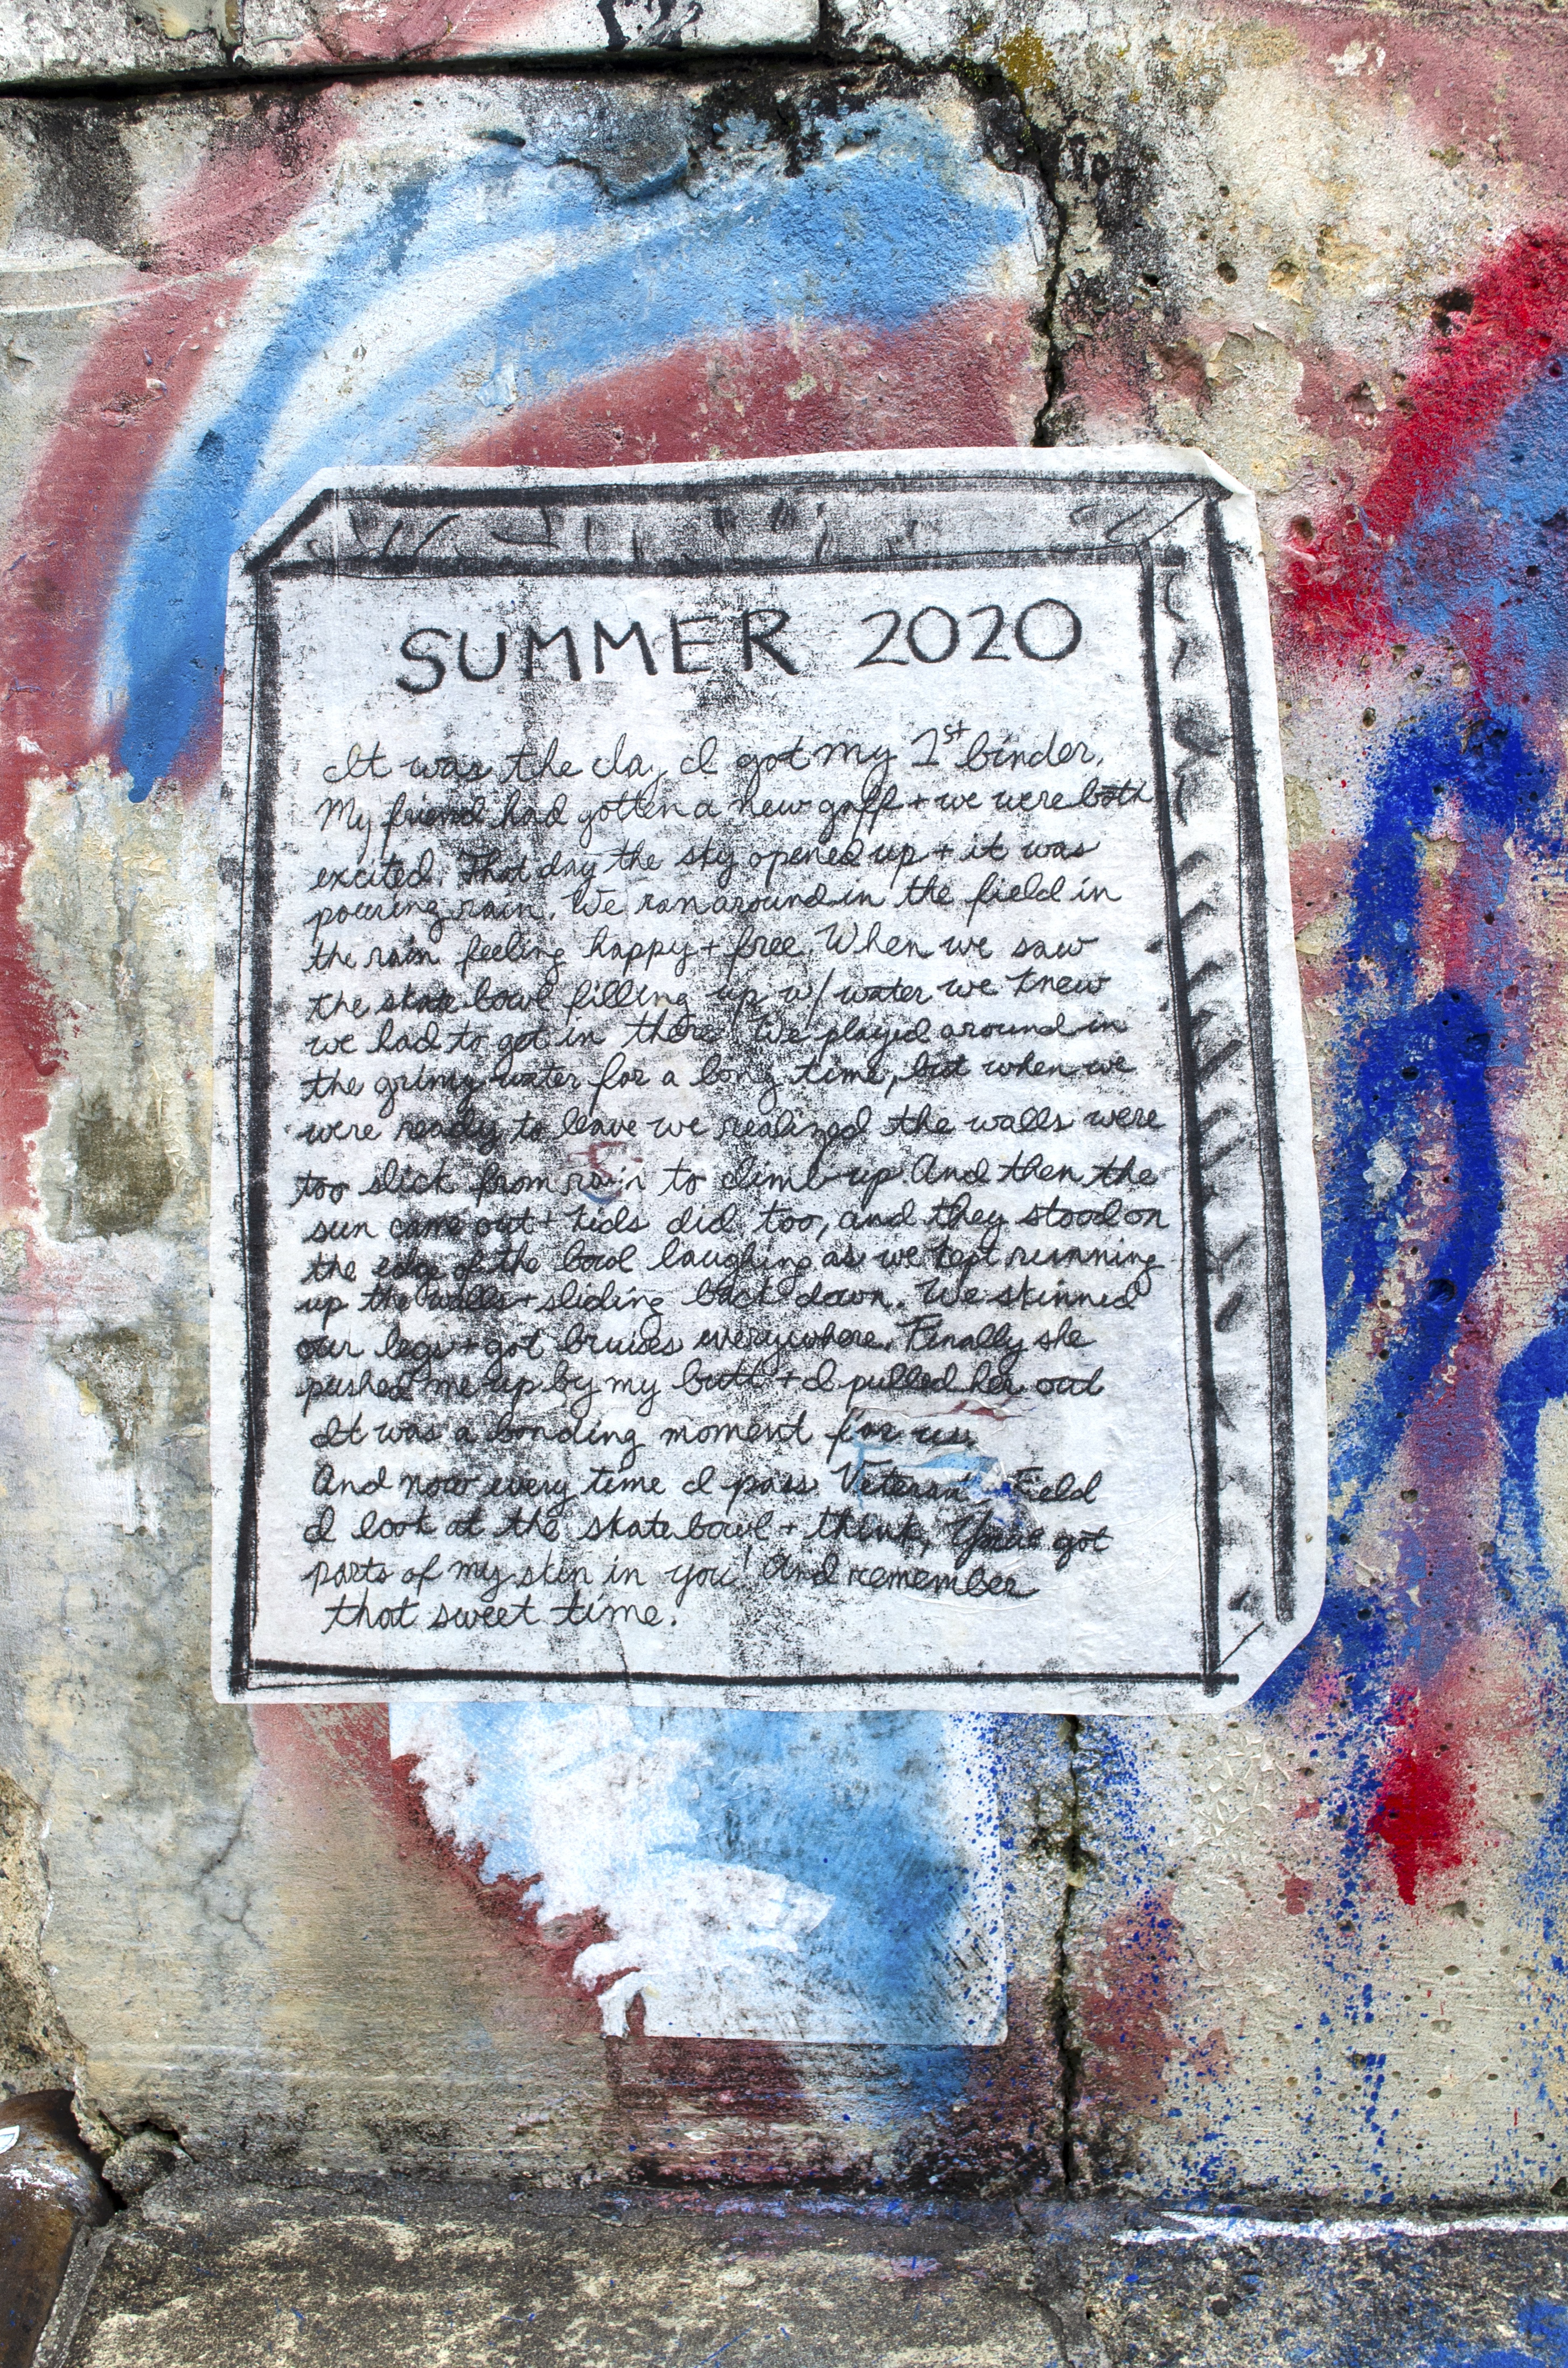 SUMMER 2020
It was the day I got my 1st binder.
My friend had gotten a new gaff + we were both
excited. That day the sky opened up + it was
pouring rain. We ran around in the field in
the rain feeling happy + free. When we saw
the skate bowl filling up w/ water we knew
we had to get in there. We played around in
the grimy water for a long time, but when we
were ready to leave we realized the walls were
too slick from rain to climb up. And then the
sun came out + kids did too, and they stood on
the edge of the bowl laughing as we kept running
up the walls + sliding back down. We skinned
our legs + got bruises everywhere. Finally she
pushed me up by my butt + I pulled her out
It was a bonding moment for us.
And now every time I pass Veterans Field
I look at the skate bowl + think, "You've got
parts of my skin in you" And remember
that sweet time.